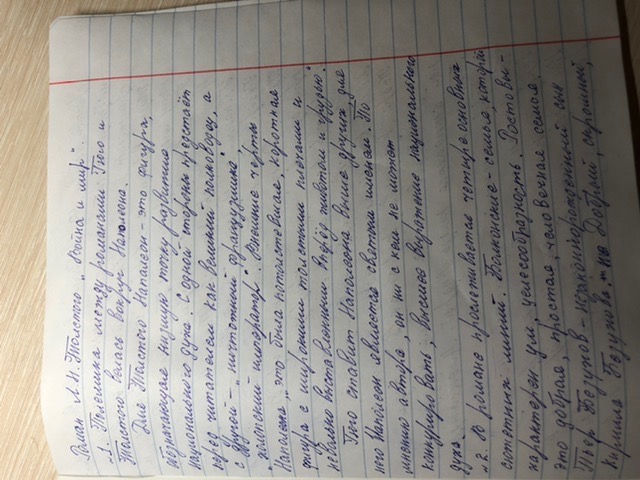 Роман Л.Н. Толстого „Война и мир".
1. Полемика между романами Гюго и
Толстого велась вокруг Наполеона.
Для Толстого Наполеон - это фигура,
обозначающая низшую точку развития
национального духа. С одной стороны предстаёт
перед читателем как великий полководец, а
с другой - „ничтожный французишка",
„жалкий император". Внешние черты
Наполеона „это была потолстевшая, короткая
фигура с широкими толстыми плечами и
невольно выставленными вперёд животом и грудью."
Гюго ставит Наполеона выше других, для
него Наполеон является святым именем. По
мнению автора, он ни с кем не может
конкурировать; высшее выражение национального
духа.
„2. В романе прослеживается четыре основных
сюжетных линий. Болконские - семья, которой
характерен ум, целесообразность. Ростовы -
это добрая, простая, человечная семья.
Пьер Безухов - незаконнорожденный сын
Кирилла Безухова. Добрый, скромный,